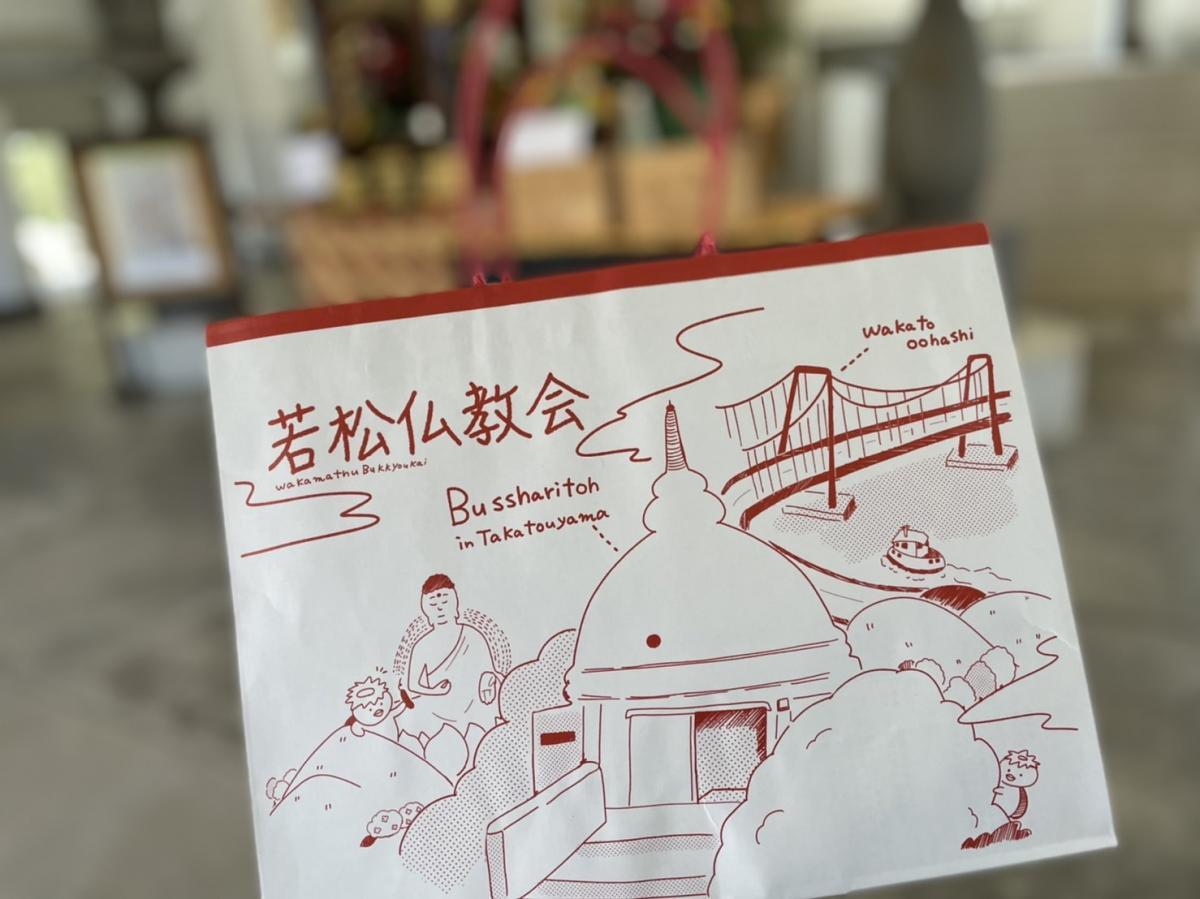 若松仏教会
wakamathu Bukkyoukai
Bussharitoh
in Takatouyama
wakato
oohashi